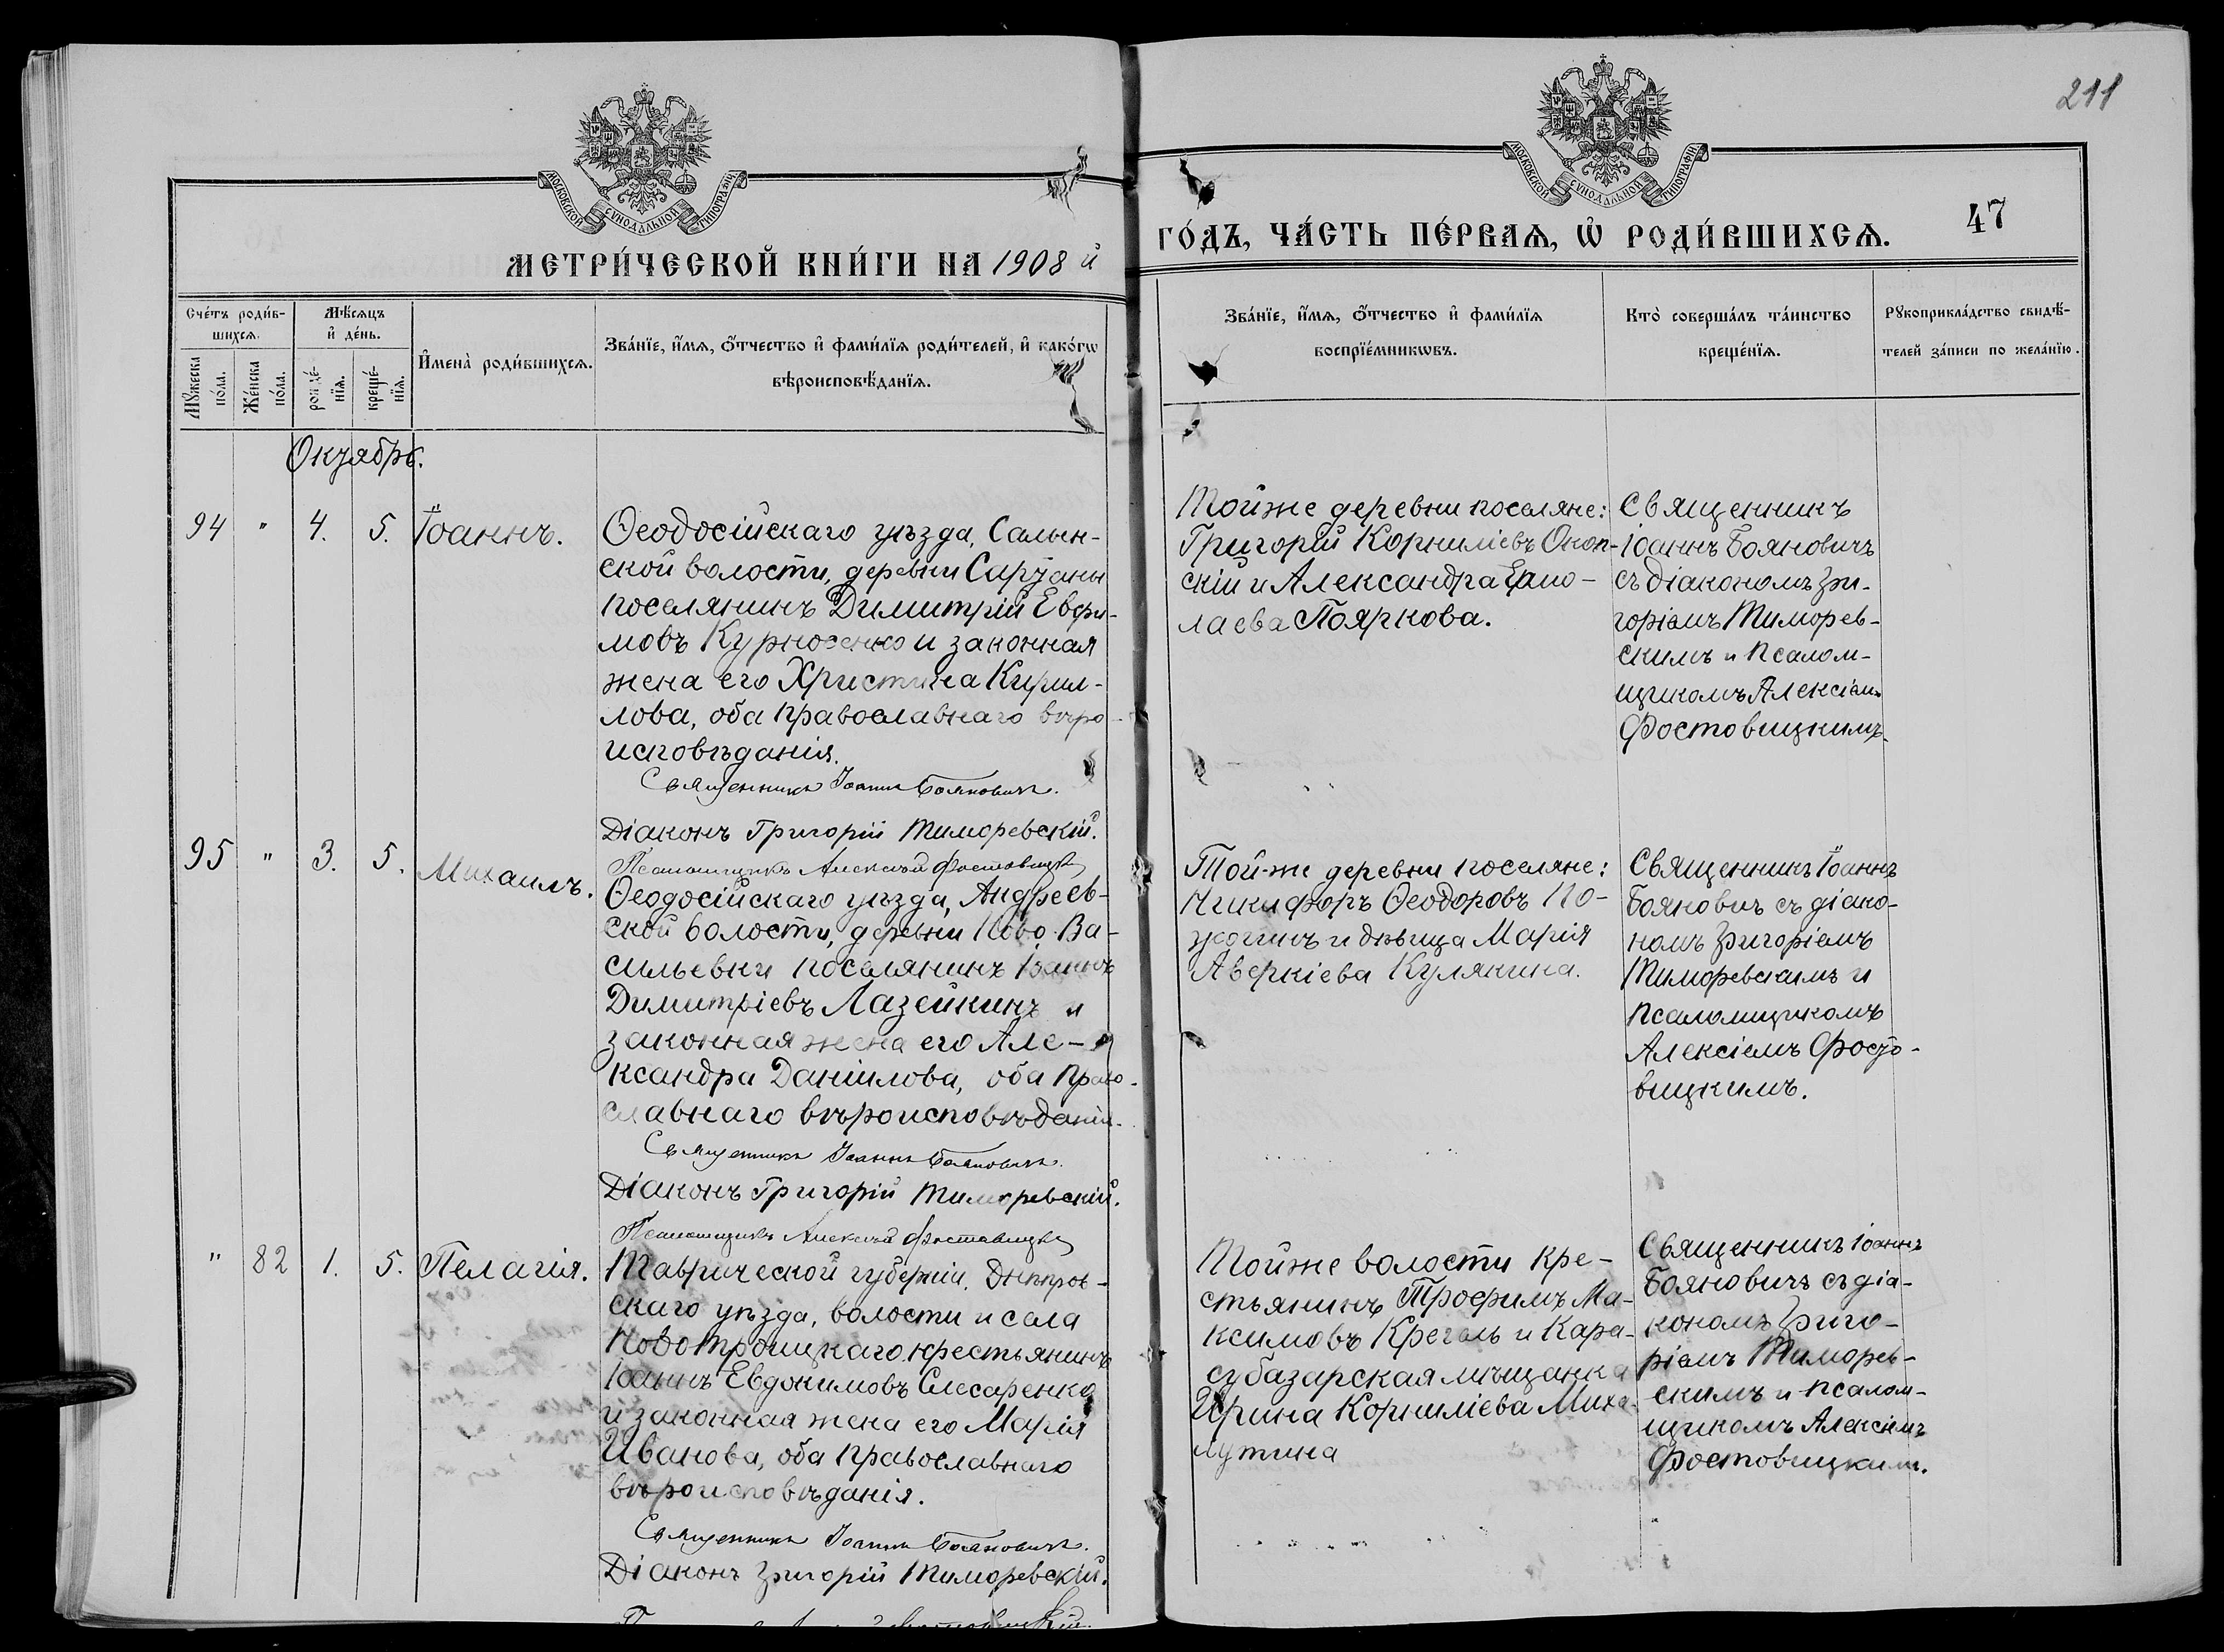 211
МОСКОВСКОЙ СѴНОДАЛЬНОЙ ТИПОГРАФІИ
МОСКОВСКОЙ СѴНОДАЛЬНОЙ ТИПОГРАФІИ
МЕТРИ́ЧЕСКОЙ КНИ́ГИ НА 1908 й
ГО́ДЪ, ЧА́СТЬ ПЕ́РВАѦ, Ѡ҆ РОДИ́ВШИХСѦ.
47
Сче́тъ роди́в-
шихсѧ.
Мѣ́сѧцъ
и҆ де́нь.
Мꙋ́жеска
по́ла.
Же́нска
по́ла.
рожде́-
нїѧ.
креще́-
нїѧ.
И҆мена̀ роди́вшихсѧ.
Зва́нїе, и҆́мѧ, ѻ҆́тчество и҆ фами́лїѧ роди́телей, и҆ како́гѡ
вѣроисповѣ́данїѧ.
Зва́нїе, и҆́мѧ, ѻ҆́тчество и҆ фами́лїѧ
воспрїе́мникѡвъ.
Кто̀ соверша́лъ та́инство
креще́нїѧ.
Рꙋкоприкла́дство свидѣ́-
телей за́писи по жела́нїю.
Октябрь.
94 " 4. 5. Іоаннъ.
Ѳеодосійскаго уѣзда, Салын-
ской волости, деревни Саруаны
поселянинъ Димитрій Евфи-
мовъ Курносенко и законная
жена его Христина Кирил-
лова, оба православнаго вѣро-
исповѣданія.
Священникъ Іоаннъ Бояновичъ.
Діаконъ Григорій Тиморевскій.
Псаломщикъ Алексій Фостовицкій
Тойже деревни поселяне:
Григорій Корниліевъ Окоп-
скій и Александра Ермо-
лаева Пояркова.
Священникъ
Іоаннъ Бояновичъ
съ діакономъ Гри-
горіемъ Тиморев-
скимъ и псалом-
щикомъ Алексіемъ
Фостовицкимъ.
95 " 3. 5. Михаилъ.
Ѳеодосійскаго уѣзда, Андреев-
ской волости, деревни Ново-Ва-
сильевки поселянинъ Іоаннъ
Димитріевъ Лазейкинъ и
законная жена его Але-
ксандра Даніилова, оба право-
славнаго вѣроисповѣданія.
Священникъ Іоаннъ Бояновичъ.
Діаконъ Григорій Тиморевскій.
Псаломщикъ Алексій Фостовицкій
Той-же деревни поселяне:
Никифоръ Ѳеодоровъ По-
жогинъ и дѣвица Марія
Аверкіева Кулякина.
Священникъ Іоаннъ
Бояновичъ съ діако-
номъ Григоріемъ
Тиморевскимъ и
псаломщикомъ
Алексіемъ Фосто-
вицкимъ.
" 82 1. 5. Пелагія.
Таврической губерніи, Днѣпров-
скаго уѣзда, волости и села
Новотроицкаго крестьянинъ
Іоаннъ Евдокимовъ Слесаренко
и законная жена его Марія
Иванова, оба православнаго
вѣроисповѣданія.
Священникъ Іоаннъ Бояновичъ.
Діаконъ Григорій Тиморевскій.
Тойже волости кре-
стьянинъ Трофимъ Ма-
ксимовъ Крегель и Кара-
субазарская мѣщанка
Ирина Корниліева Миха-
лутина
Священникъ Іоаннъ
Бояновичъ съ діа-
кономъ Григо-
ріемъ Тиморев-
скимъ и псалом-
щикомъ Алексіемъ
Фостовицкимъ.